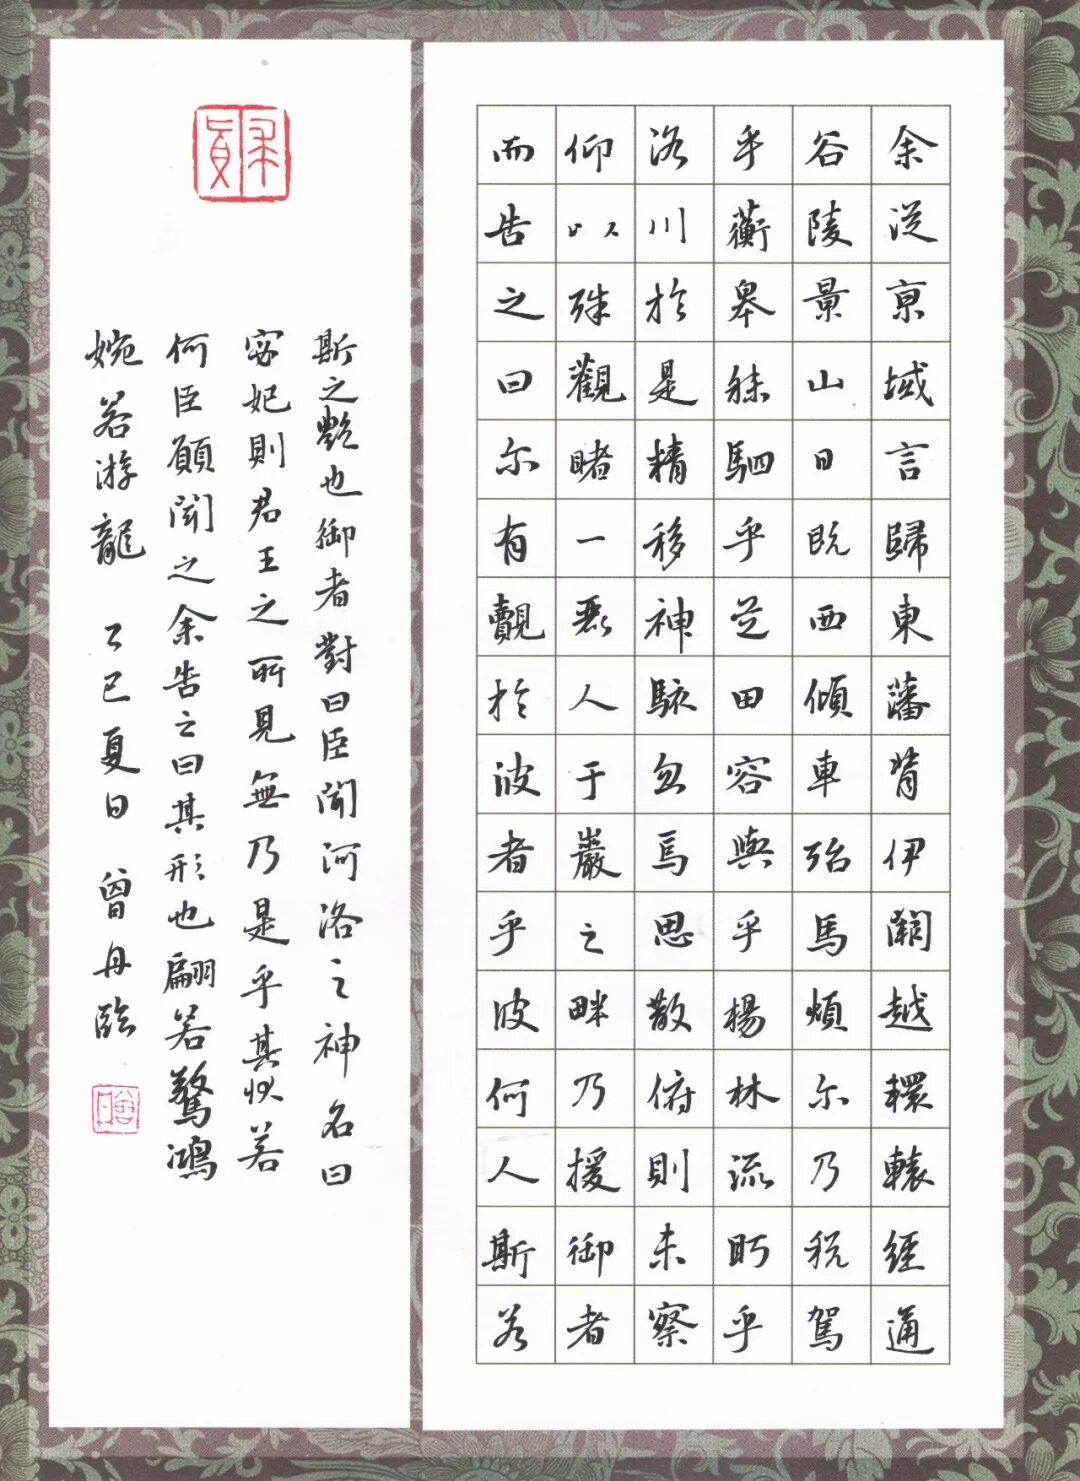 余從京域言歸東藩背伊闕越轘轅經通
谷陵景山日既西傾車殆馬煩尔乃稅駕
乎蘅皋秣駟乎芝田容與乎楊林流眄乎
洛川於是精移神駭忽焉思散俯則未察
仰以殊觀睹一麗人于巖之畔乃援御者
而告之曰尔有覿於彼者乎彼何人斯若
斯之艷也御者對曰臣聞河洛之神名曰
宓妃則君王之所見無乃是乎其狀若
何臣願聞之余告之曰其形也翩若驚鴻
婉若游龍 乙巳夏日 曾丹臨
曾丹